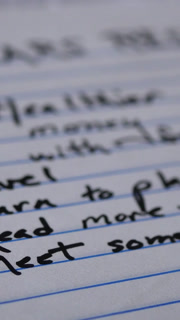 EARS RES
Healthier
money
with
vel
arn to ph
ead more
eet some